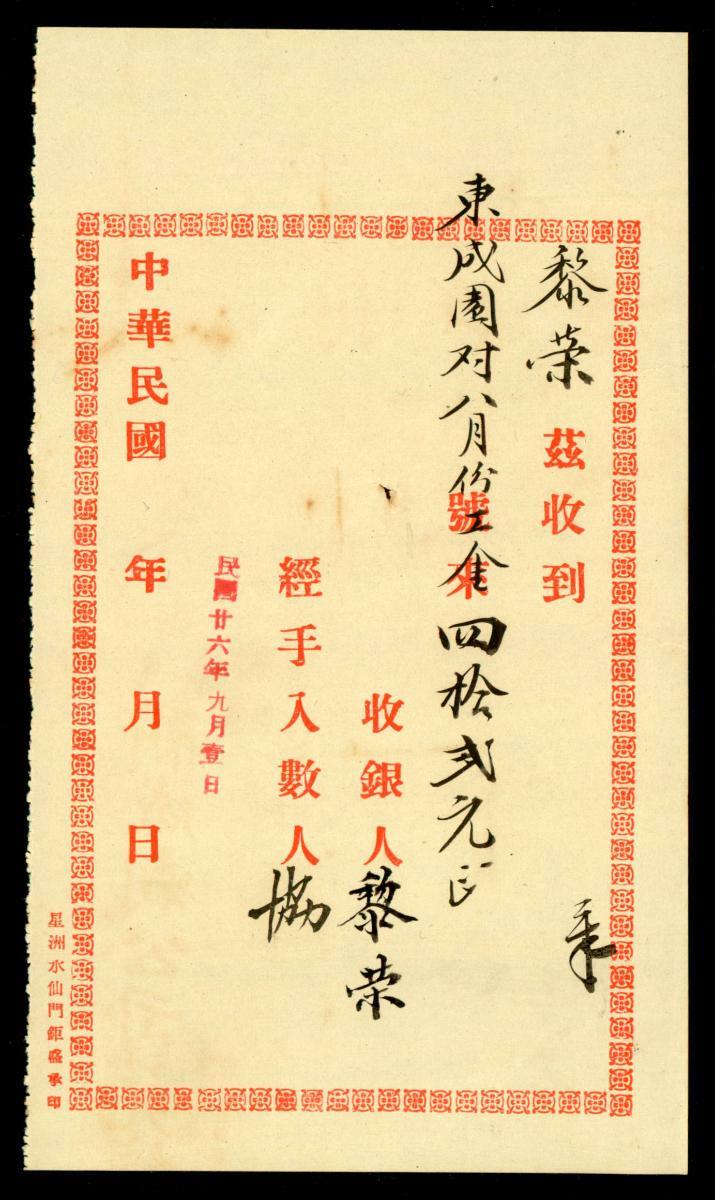 黎荣 茲收到
東成園对八月份工金四拾弍元正
號來
收銀人 黎荣
經手入數人 協
民國廿六年九月壹日
中華民國 年 月 日
星洲水仙門鉅盛承印